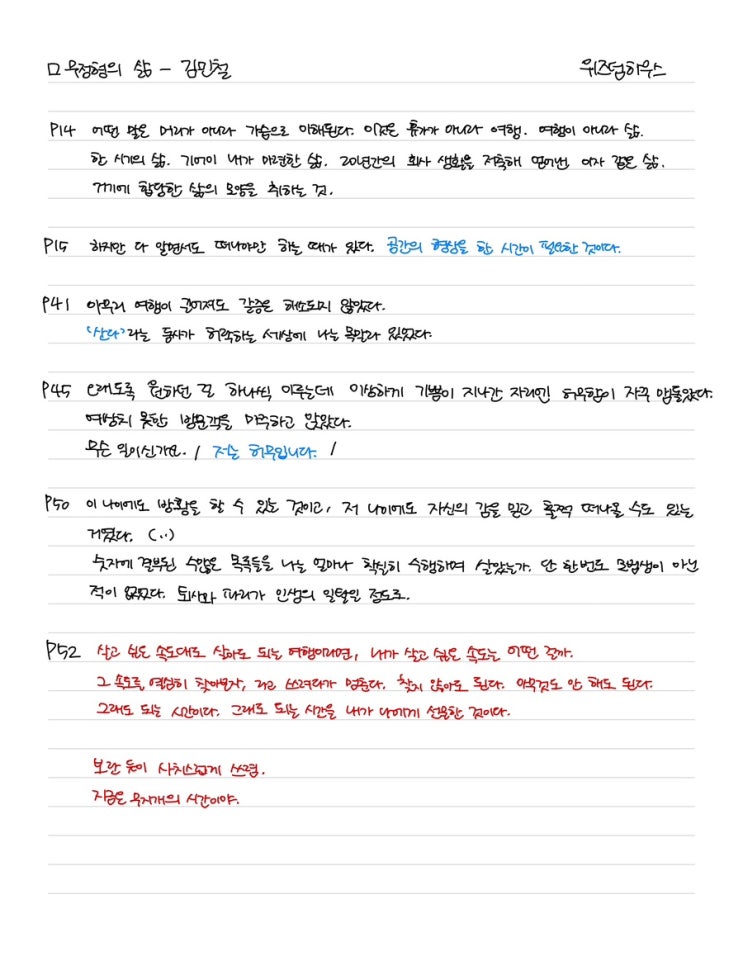 □ 무정형의 삶 - 김민철 위즈덤하우스
P14 어떤 말은 머리가 아니라 가슴으로 이해된다. 이것은 휴가가 아니라 여행. 여행이 아니라 삶.
한 시기의 삶. 기어이 내가 마련한 삶. 20년간의 회사 생활을 저축해 얻어낸 이자 같은 삶.
거기에 합당한 삶의 모양을 취하는 것.
P15 하지만 다 알면서도 떠나야만 하는 때가 있다. 공간의 형상을 한 시간이 필요한 것이다.
P41 아무리 여행이 길어져도 갈증은 해소되지 않았다.
'산다'라는 동사가 허락하는 세상에 나는 목말라 있었다.
P45 오래도록 원하던 걸 하나씩 이루는데 이상하게 기쁨이 지나간 자리엔 허무함이 자꾸 맴돌았다.
예상치 못한 방문객을 마주하고 앉았다.
무슨 일이신가요. / 저는 허무입니다. /
P50 이 나이에도 방황을 할 수 있는 것이고, 저 나이에도 자신의 감을 믿고 훌쩍 떠나올 수도 있는
거였다. (..)
숫자에 결부된 수많은 목록들을 나는 얼마나 착실히 수행하며 살았는가. 단 한번도 모범생이 아닌
적이 없었다. 퇴사와 파리가 인생의 일탈일 정도로.
P52 살고 싶은 속도대로 살아도 되는 여행이라면, 내가 살고 싶은 속도는 어떤 걸까.
그 속도를 열심히 찾아보자, 라고 쓰려다가 멈춘다. 찾지 않아도 된다. 아무것도 안 해도 된다.
그래도 되는 시간이다. 그래도 되는 시간을 내가 나에게 선물한 것이다.
보란 듯이 사치스럽게 쓰렴.
지금은 무지개의 시간이야.